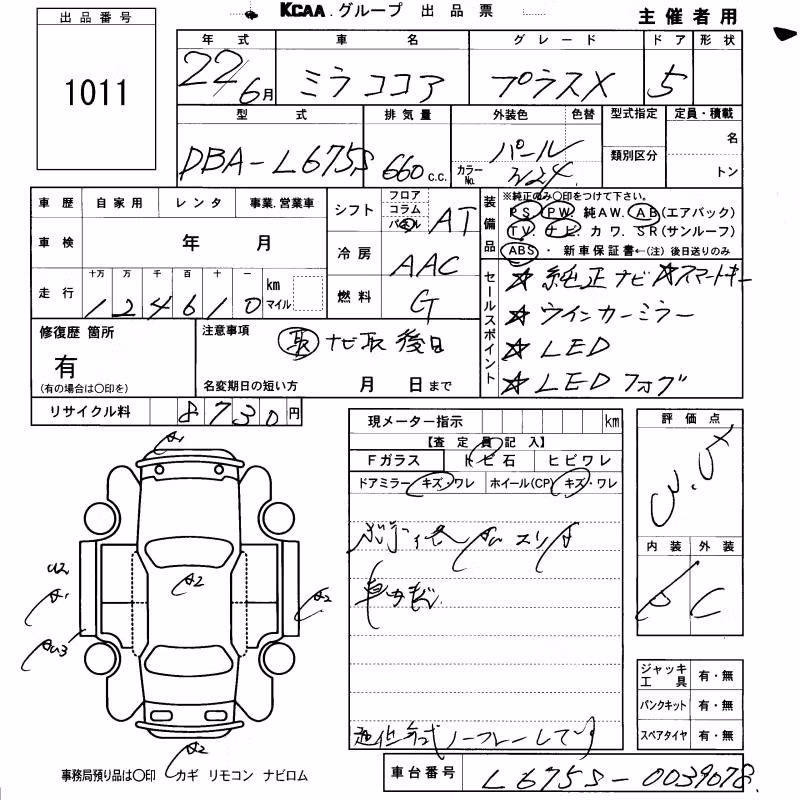 KCAA.グループ 出品票
主催者用
出品番号
1011
年式 車名 グレード ドア 形状
22年6月 ミラココア プラスX 5
型式 排気量 外装色 色替 型式指定 定員・積載
DBA-L675S 660 c.c. パール カラーNo. W24 類別区分 名 トン
車歴 自家用 レンタ 事業.営業車
車検 年 月
走行 十万 万 千 百 十 一 km マイル
124610
シフト フロア コラム パネル AT
冷房 AAC
燃料 G
装備品
※純正のみ○印をつけて下さい。
PS PW 純AW. AB(エアバック)
TV. ナビ. カワ. SR(サンルーフ)
ABS・ 新車保証書←(注) 後日送りのみ
セールスポイント
☆ 純正ナビ ☆スマートキー
☆ ウインカーミラー
☆ LED
☆ LED フォグ
修復歴 箇所
有
(有の場合は○印を)
注意事項
取 ナビ取 後日
名変期日の短い方 月 日まで
リサイクル料 8730円
現メーター指示 km
【査定員記入】
Fガラス トビ石 ヒビワレ
ドアミラー キズ・ワレ ホイール(CP) キズ・ワレ
評価点
内装 外装
C
A1
A2
U2
A1
A2
A2
ジャッキ工具 有・無
パンクキット 有・無
スペアタイヤ 有・無
事務局預り品は○印 カギ リモコン ナビロム
車台番号 L675S-0039078